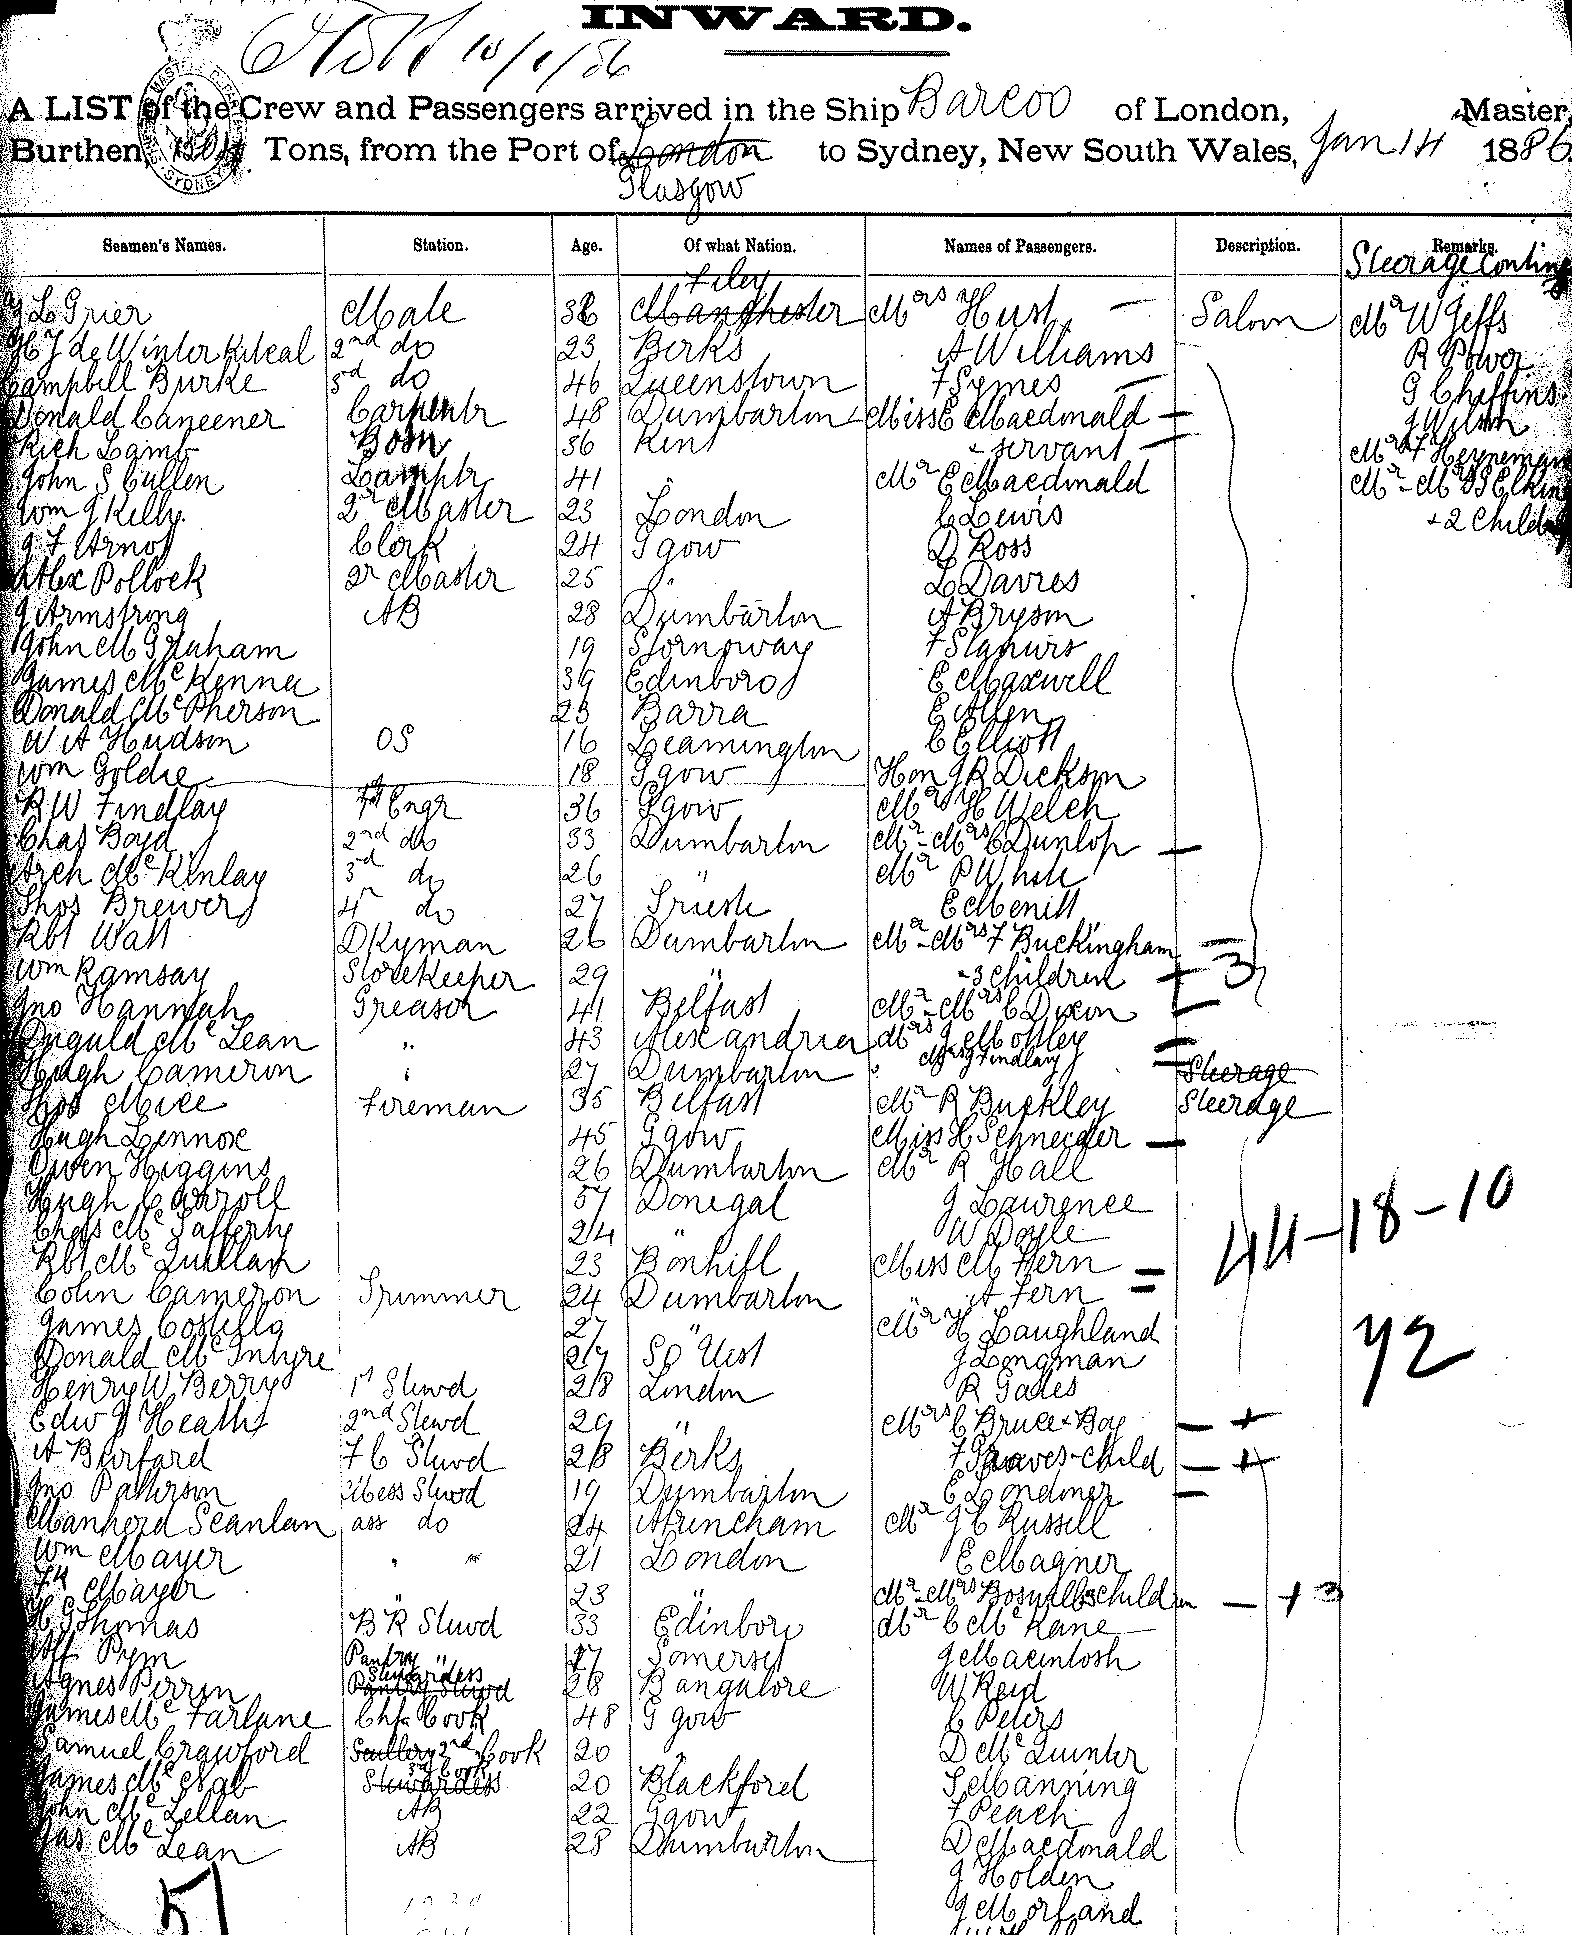 INWARD.
A LIST of the Crew and Passengers arrived in the Ship Barcoo of London, Master,
Burthen Tons, from the Port of London to Sydney, New South Wales, Jan 14 1886
Glasgow
Seamen's Names. Station. Age. Of what Nation. Names of Passengers. Description. Remarks.
Steerage Contin
Filey
L Grier Mate Manchester Mrs Hurst Saloon Mr W Jeffs
2nd do 23 Berks A Williams R Power
Campbell Burke 3d do 46 Queenstown F Symes G Chaffins
Donald Carpentr 48 Dumbarton Miss E Macdonald J Wilson
Rich Lamb Bosn 36 Kent + servant Heyneman
John S Cullen Lamptr 41 " Mr E Macdonald Mr - Mrs Elkin
Wm J Kelly 2r Master 23 London C Lewis + 2 Child
J F Arnot Clerk 24 Ggow D Ross
Alex Pollock 2r Master 25 " L Davies
J Armstrong AB 28 Dumbarton A Bryson
John M Graham 19 Stornoway F
James McKenna 39 Edinboro E Maxwell
Donald McPherson 23 Barra E Allen
W A Hudson OS 16 Leamington C Elliott
Wm Goldie 18 Ggow Hon J R Dickson
R W Findlay 1st Engr 36 Ggow Mrs H Welch
Chas Boyd 2nd do 33 Dumbarton Mr - Mrs C Dunlop
Arch McKinlay 3rd do 26 " Mr P White
Thos Brewer 4r do 27 Trieste E Merritt
Rbt Watt DKyman 26 Dumbarton Mr - Mrs F Buckingham
Wm Ramsay Storekeeper 29 " - 3 children 3
Jno Hannah Greaser 41 Belfast Mr - Mrs C Dixon
Duguld McLean " 43 Alexandria Mrs J Mottley
Hugh Cameron " 27 Dumbarton " Mrs J Findlay Steerage
Thos Mice Fireman 35 Belfast Mr R Buckley Steerage
Hugh Lennox 45 Ggow Miss H Schneider
Owen Higgins 26 Dumbarton Mr R Hall
Hugh Carroll 57 Donegal J Lawrence
Chas McLafferty 24 " W Doyle 44-18-10
Rbt McQuillan 23 Bonhill Miss M Fern
Colin Cameron Trimmer 24 Dumbarton " A Fern
James Costello 27 " Mr H Laughland
Donald McIntyre 27 So Uist J Longman 72
Henry W Berry 1st Stewd 28 London R Gades
Edw J Heath 2nd Stewd 29 " Mrs C Bruce + Boy - +
A Burford F C Stewd 28 Berks F Graves - child - +
Jno Paterson Mess Stewd 19 Dumbarton E Londoner -
Scanlan ass do 24 Altrincham Mr J C Russell
Wm Mayer " " 21 London E Magner
Mayer " 23 " Mr - Mrs children - + 3
H G Thomas B R Stewd 33 Edinboro Mr C McKane
Pym Pantry " 17 Somerset J Macintosh
Agnes Perrin Pantry Stewd Stewardess 28 Bangalore W Reid
James McFarlane Chf Cook 48 Ggow C Peters
Samuel Crawford Scullery 2nd Cook 20 " D McQuinter
James McNab Stewardess 3rd Cook 20 Blackford S Manning
John McLellan AB 22 Ggow F Peach
Jas McLean AB 28 Dumbarton D Macdonald
J Holden
51 J Morland